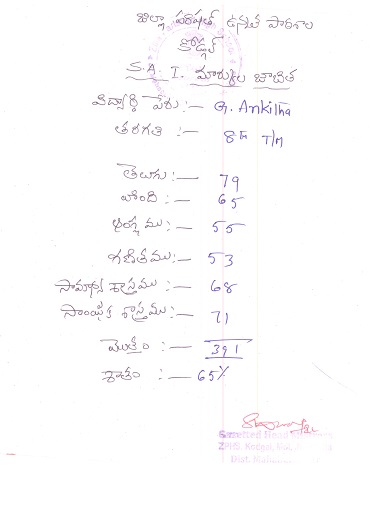 జిల్లా పరిషత్ ఉన్నత పాఠశాల
కోడ్గల్
S.A. I. మార్కుల జాబిత
విద్యార్థి పేరు:- G. Ankitha
తరగతి :- 8th T/M
తెలుగు:- 79
హింది :- 65
ఆంగ్లము:- 55
గణితము:- 53
సామాన్య శాస్త్రము:- 68
సాంఘీక శాస్త్రము:- 71
మొత్తం :- 391
శాతం :- 65%
Gazetted Head
ZPHS. Kodgal,
Dist.